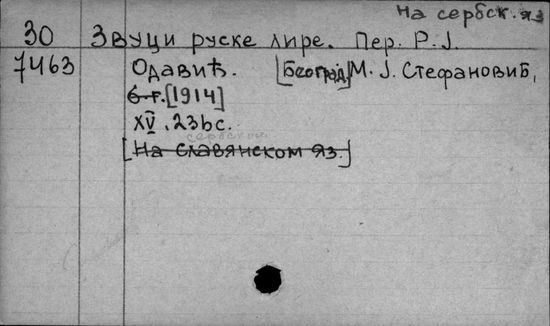 На сербск. яз
30 Звуци руске лире. Пер. Р. Ј.
7463 Одавић. [Београд] М. Ј. Стефановић,
б. г. [1914]
XV, 236 с.
сербском
[На славянском яз.]